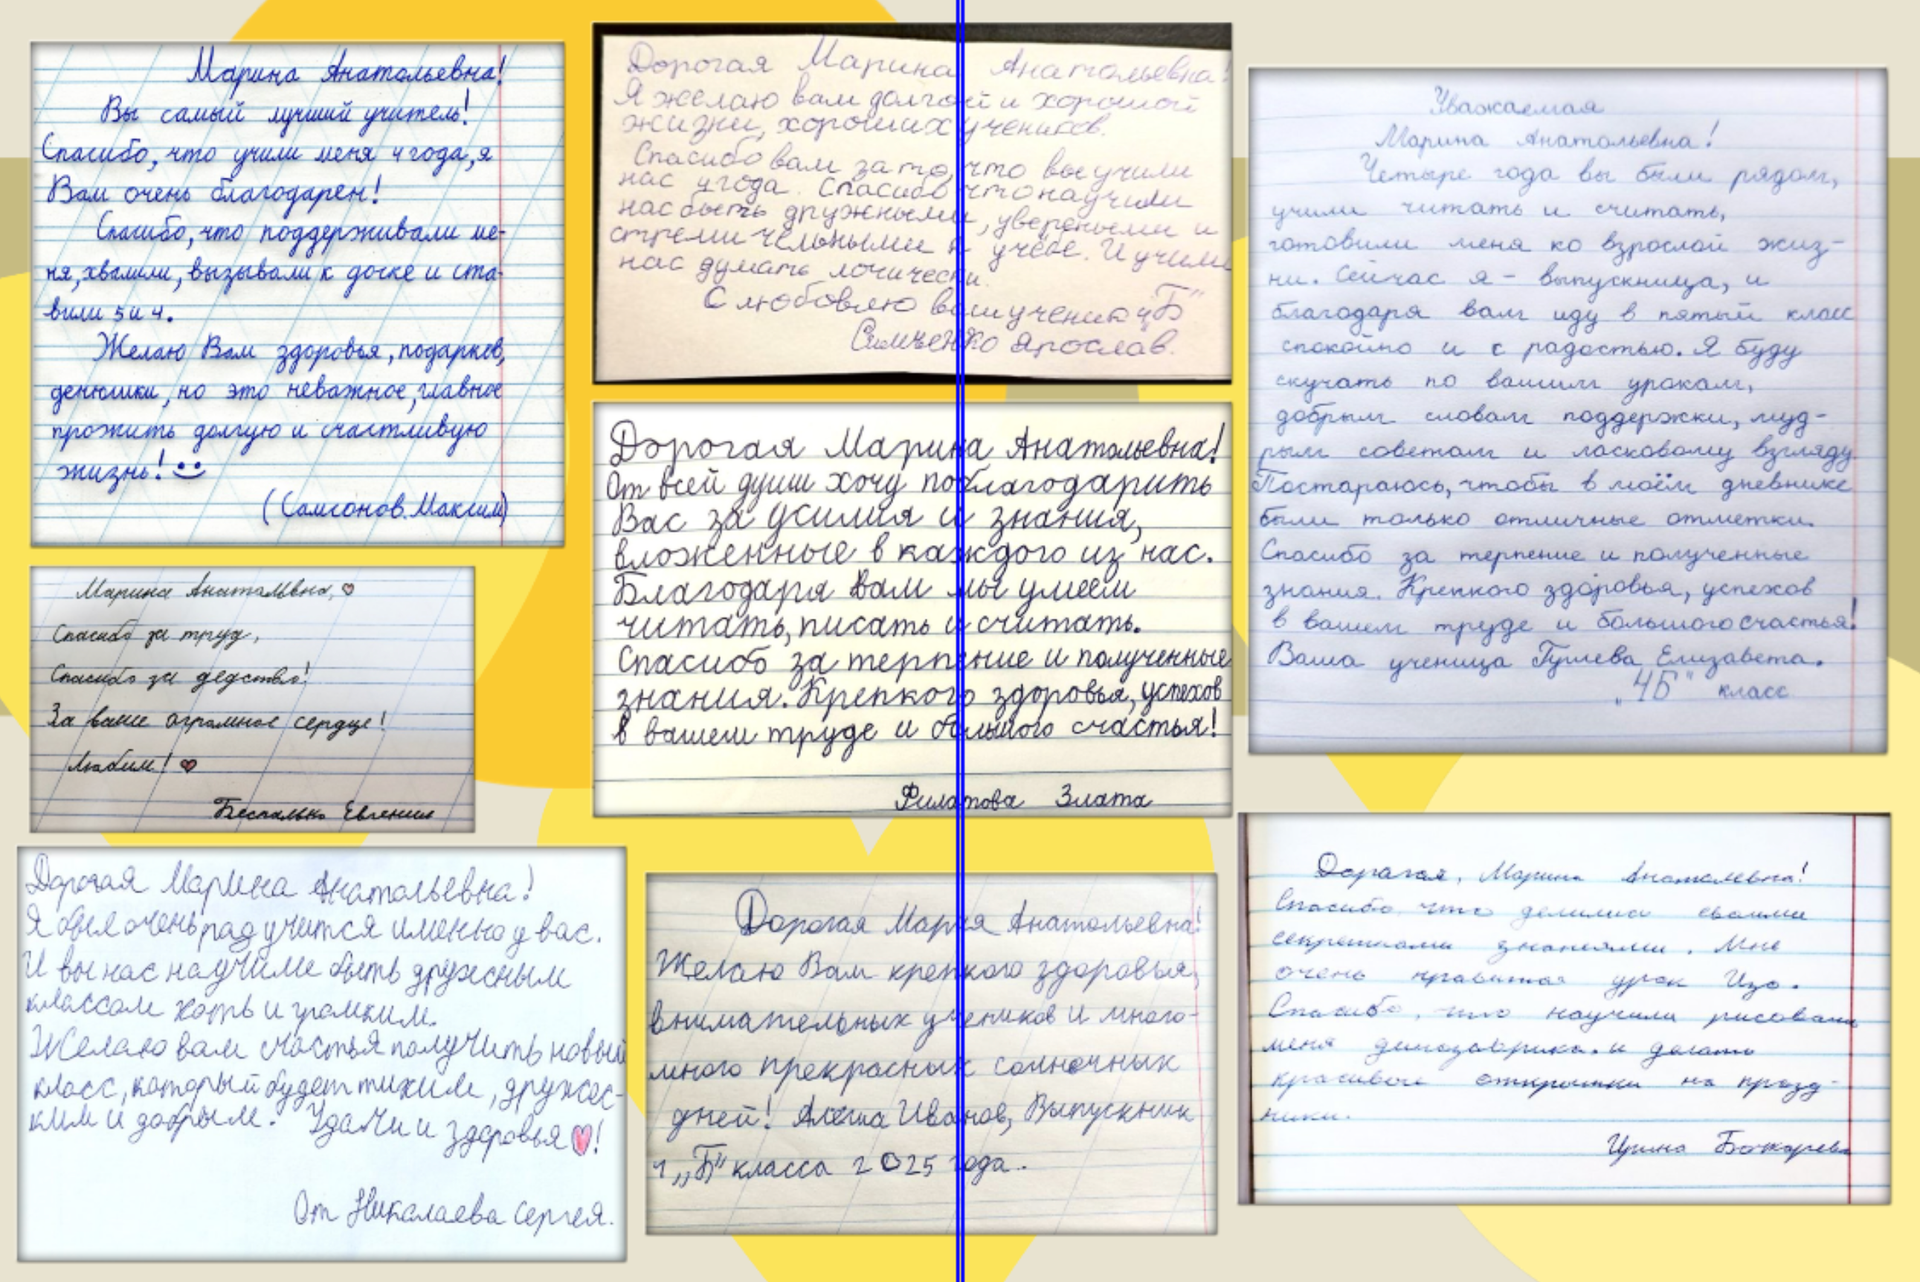 Марина Анатольевна!
Вы самый лучший учитель!
Спасибо, что учили меня 4 года, я
Вам очень благодарен!
Спасибо, что поддерживали ме-
ня, хвалили, вызывали к доске и ста-
вили 5 и 4.
Желаю Вам здоровья, подарков,
денюшки, но это неважное, главное
прожить долгую и счастливую
жизнь!
(Самсонов Максим)
Марина Анатольевна,
Спасибо за труд,
Спасибо за детство!
За ваше огромное сердце!
Любим!
Беспалько Евгения
Дорогая Марина Анатольевна!
Я был очень рад учится именно у вас.
И вы нас научиле быть дружным
классом хоть и громким.
Желаю вам счастья получить новый
класс, который будет тихим, дружес-
ким и добрым. Удачи и здоровья!
От Николаева Сергея.
Дорогая Марина Анатольевна!
Я желаю вам долгой и хорошой
жизни, хороших учеников.
Спасибо вам за то, что вы учили
нас 4 года. Спасибо что научили
нас быть дружными, увереными и
стремительными к учёбе. И учили
нас думать логически.
С любовлю ваш ученик 4"Б"
Симченко Ярослав.
Дорогая Марина Анатольевна!
От всей души хочу поблагодарить
Вас за усилия и знания,
вложенные в каждого из нас.
Благодаря вам мы умеем
читать, писать и считать.
Спасибо за терпение и полученные
знания. Крепкого здоровья, успехов
в вашем труде и большого счастья!
Филатова Злата
Дорогая Мария Анатольевна!
Желаю Вам крепкого здоровья,
внимательных учеников и много-
много прекрасных солнечных
дней! Алёша Иванов, Выпускник
4 „Б" класса 2025 года.
Уважаемая
Марина Анатольевна!
Четыре года вы были рядом,
учили читать и считать,
готовили меня ко взрослой жиз-
ни. Сейчас я - выпускница, и
благодаря вам иду в пятый класс
спокойно и с радостью. Я буду
скучать по вашим урокам,
добрым словам поддержки, муд-
рым советам и ласковому взгляду
Постараюсь, чтобы в моём дневнике
были только отличные отметки.
Спасибо за терпение и полученные
знания. Крепкого здоровья, успехов
в вашем труде и большого счастья!
Ваша ученица Елизавета.
„4Б" класс
Дорагая, Марина Анатолевна!
Спасибо что делились своими
секретнами знаниями. Мне
очень нравится урок Изо.
Спасибо, что научили рисовать
меня динозаврика и делать
красивые открытки на празд-
ники.
Ирина Бочкарева